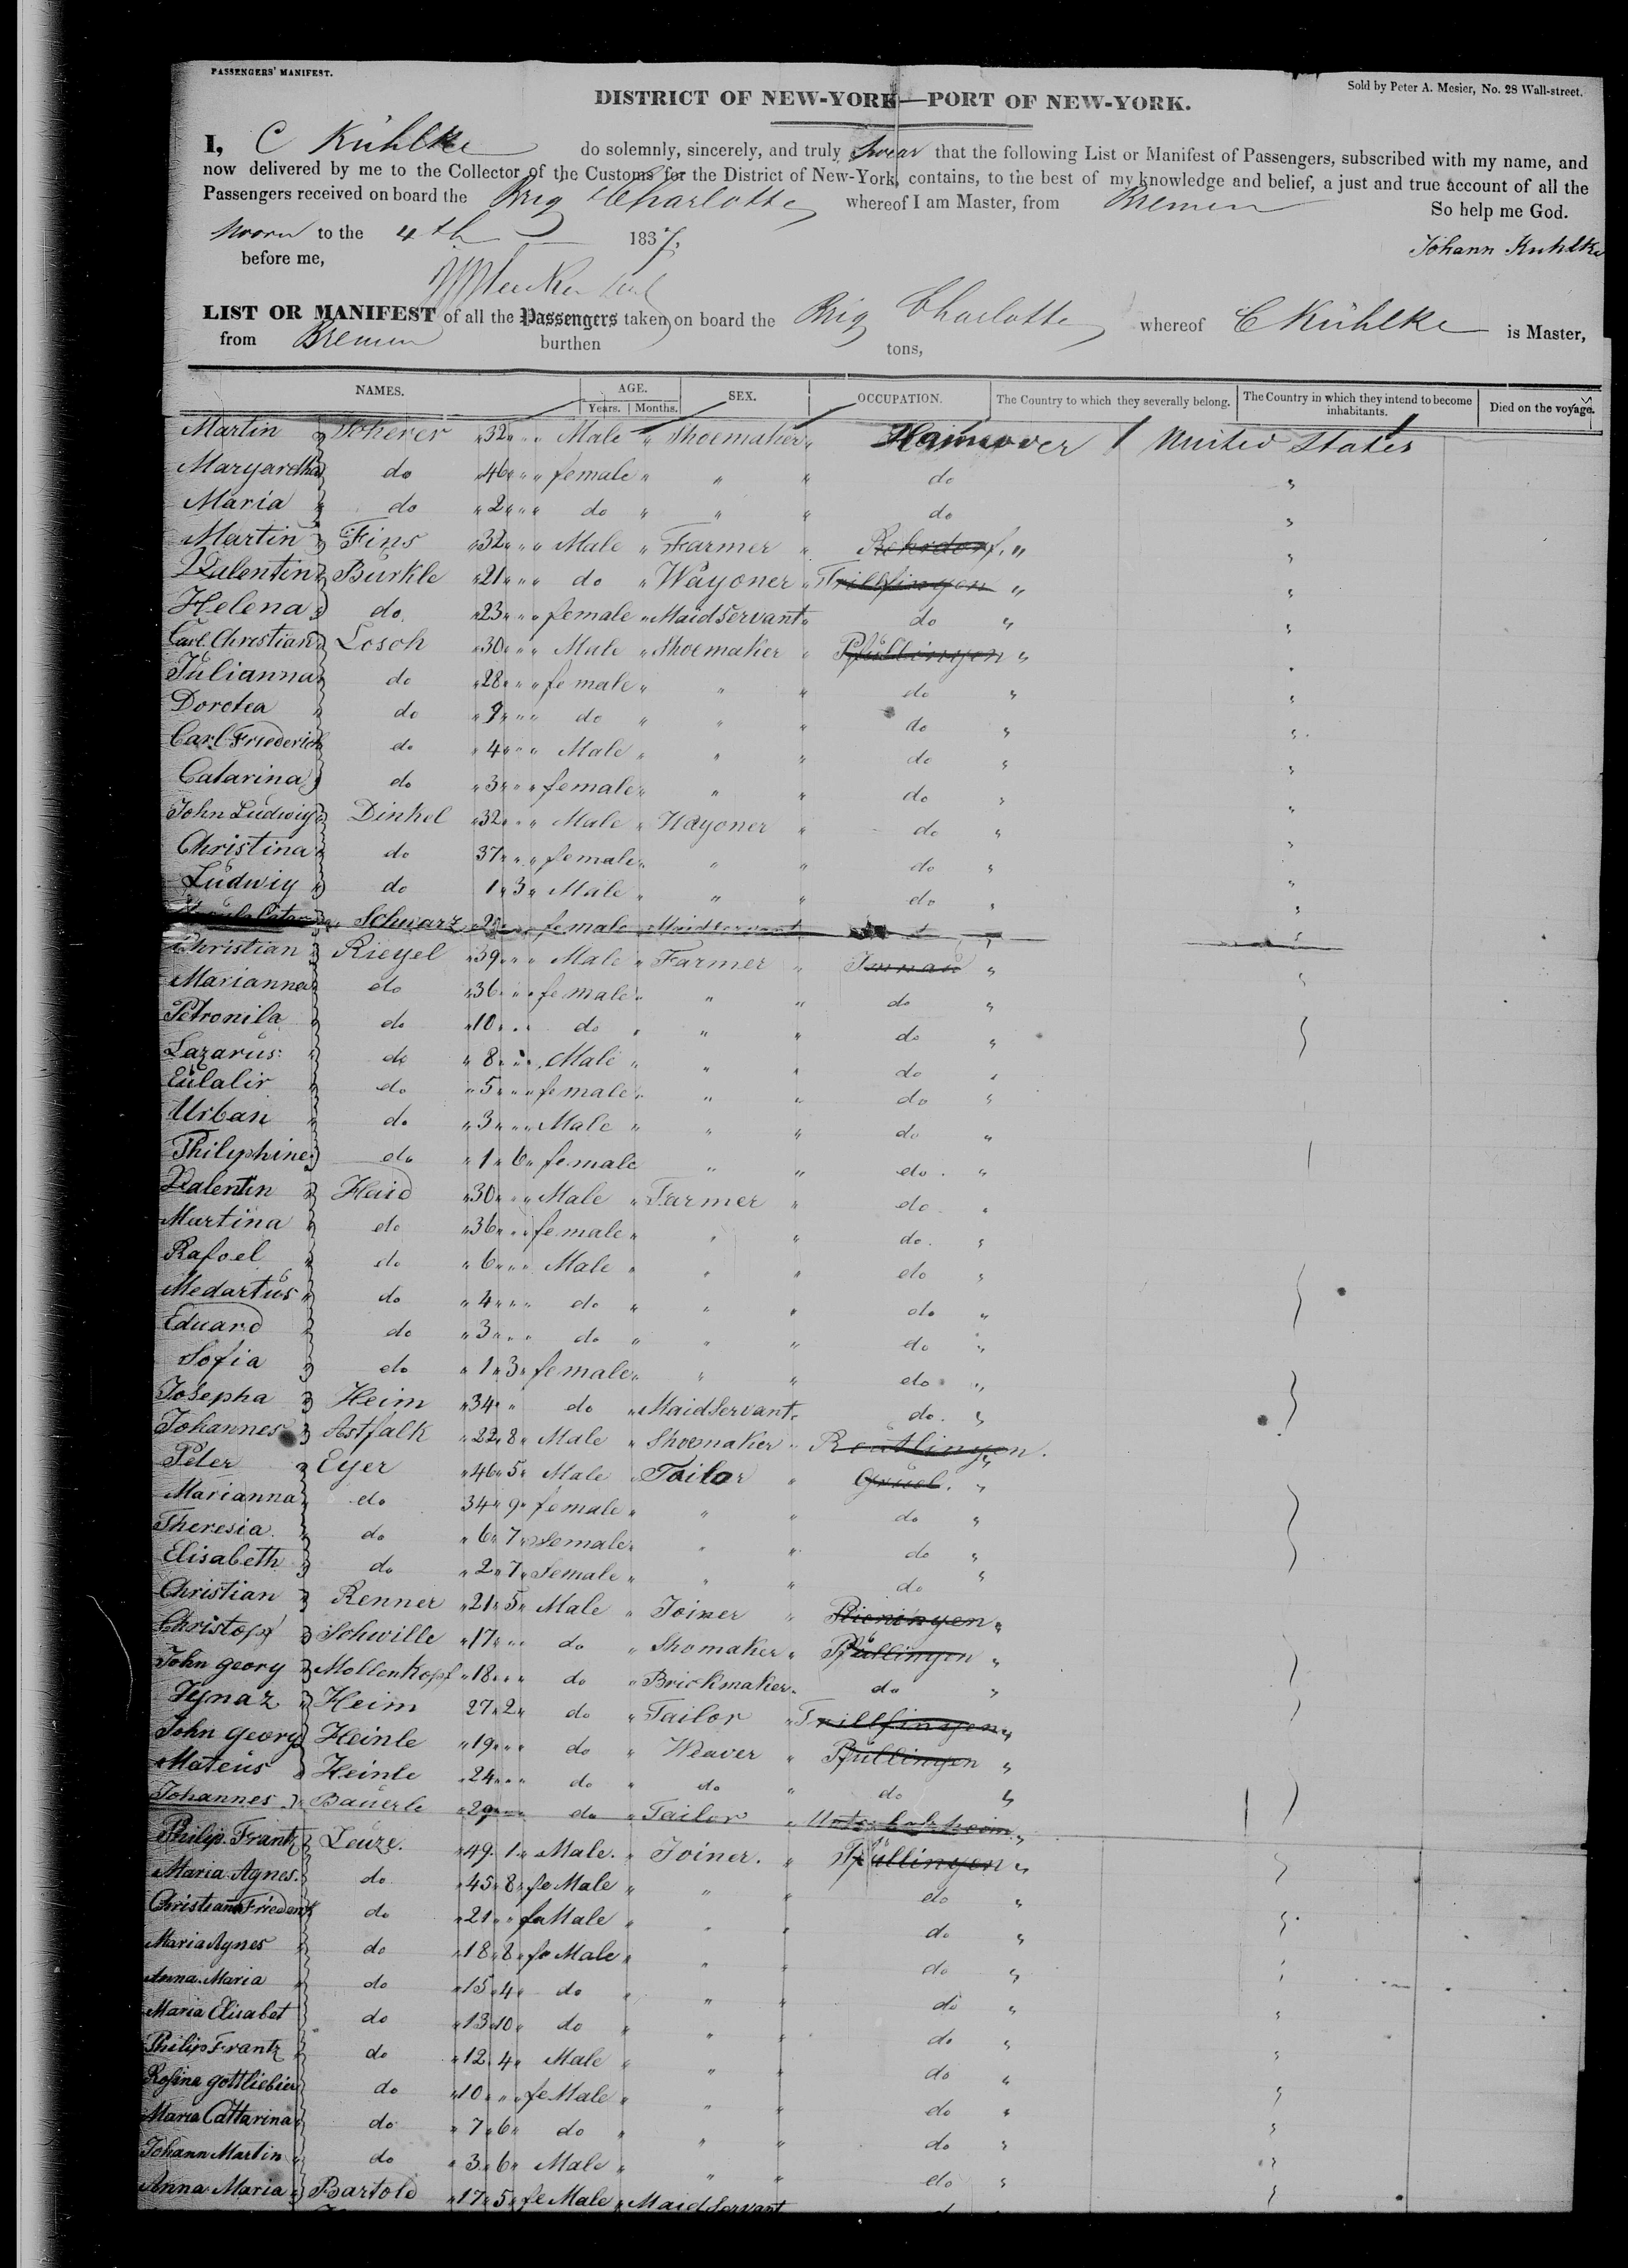 PASSENGERS' MANIFEST.
Sold by Peter A. Mesier, No. 28 Wall-street.
DISTRICT OF NEW-YORK—PORT OF NEW-YORK.
I, C Kühlke do solemnly, sincerely, and truly swear that the following List or Manifest of Passengers, subscribed with my name, and
now delivered by me to the Collector of the Customs for the District of New-York, contains, to the best of my knowledge and belief, a just and true account of all the
Passengers received on board the Brig Charlotte whereof I am Master, from Bremen
So help me God.
Sworn to the 4th 1837.
Johann Kuhlke
before me,
LIST OR MANIFEST of all the Passengers taken on board the Brig Charlotte whereof C Kühlke is Master,
from Bremen burthen tons,
NAMES. AGE. SEX. OCCUPATION. The Country to which they severally belong. The Country in which they intend to become inhabitants. Died on the voyage.
Years. Months.
Martin Scherer " 32 " " " Male " Shoemaker " Hannover United States
Margaretha do " 46 " " " female " " " do "
Maria do " 2 " " " do " " " do "
Martin Fins " 32 " " " Male " Farmer " Rohrdorf " "
Valentin Bürkle " 21 " " " do " Wagoner " Trillfingen " "
Helena do " 23 " " " female " Maidservant " do " "
Carl Christian Losch " 30 " " " Male " Shoemaker " Pfullingen " "
Julianna do " 28 " " " female " " " do " "
Dorotea do " 9 " " " do " " " do " "
Carl Friederich do " 4 " " " Male " " " do " "
Catarina do " 3 " " " female " " " do " "
John Ludwig Dinkel " 32 " " " Male " Wagoner " do " "
Christina do 37 " " " female " " " do " "
Ludwig do 1 " 3 " Male " " " do " "
Schwarz female Maidservant
Christian Riegel " 39 " " " Male " Farmer " Imnau " "
Marianna do " 36 " " " female " " " do "
Petronila do " 10 " " " do " " " do "
Lazarus do " 8 " " " Male " " " do "
Eulalir do " 5 " " " female " " " do "
Urban do " 3 " " " Male " " " do "
Philyphine do " 1 " 6 " female " " do "
Valentin Haid " 30 " " " Male " Farmer " do "
Martina do " 36 " " " female " " " do "
Rafael do " 6 " " " Male " " " do "
Medartus do " 4 " " " do " " " do "
Eduard do " 3 " " " do " " " do "
Sofia do " 1 " 3 " female " " " do "
Josepha Heim " 34 " " do " Maidservant " do "
Johannes Astfalk " 22 " 8 " Male " Shoemaker " Reutlingen "
Peter Eger " 46 " 5 " Male " Tailor " Gruol "
Marianna do 34 " 9 " female " " " do "
Theresia do " 6 " 7 " female " " " do "
Elisabeth do " 2 " 7 " female " " " do "
Christian Renner " 21 " 5 " Male " Joiner "
Christopf Schwille " 17 " " " do " Shomaker " Pfullingen "
John georg Mollenkopf " 18 " " " do " Brickmaker " do "
Ignaz Heim 27 " 2 " do " Tailor " Trillfingen "
John georg Heinle " 19 " " " do " Weaver " Pfullingen "
Mateus Heinle " 24 " " " do " do " do "
Johannes Bauerle " 29 " " " do " Tailor "
Philip Frantz Leuze. " 49 " 1 " Male " Joiner. " Pfullingen "
Maria Agnes. do " 45 " 8 " feMale " " " do "
do " 21 " " feMale " " " do "
Maria Agnes do " 18 " 8 " feMale " " " do "
Anna Maria do " 15 " 4 " do " " " do "
Maria Elisabet do " 13 " 10 " do " " " do "
Philip Frantz do " 12 " 4 " Male " " " do "
Rosina gottliebin do " 10 " " " feMale " " " do "
Maria Cattarina do " 7 " 6 " do " " " do "
Johann Martin do " 3 " 6 " Male " " " do "
Anna Maria Bartold " 17 " 5 " feMale " Maidservant